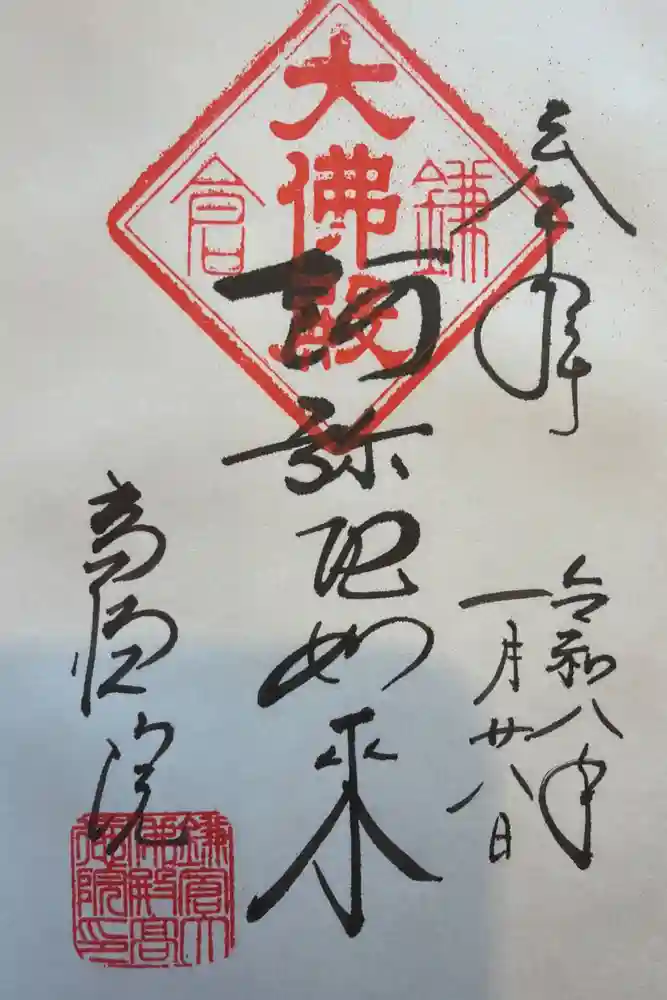 奉拝
令和八年
一月廿八日
大佛殿
鎌倉
阿弥陀如来
高徳院
鎌倉大
佛殿高
徳院印